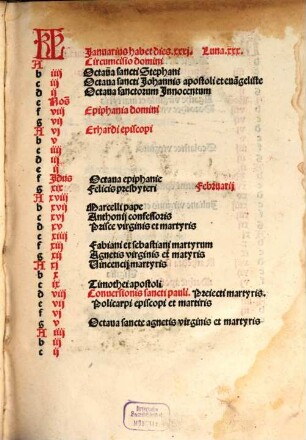 KL Januarius habet dies.xxxj. Luna.xxx.
A Circumcisio domini
b iiij Octaua sancti Stephani
c iij Octaua sancti Johannis apostoli et euāgeliste
d ij Octaua sanctorum Innocentum
e Nos
f viij Epiphania domini
g vij
A vj Erhardi episcopi
b v
c iiij
d iij
e ij
f Jdus Octaua epiphanie
g xix Felicis presbyteri Februarij
A xviij
b xvij Marcelli pape
c xvj Anthonij confessoris
d xv Prisce virginis et martyris
e xiiij
f xiij Fabiani et sebastiani martyrum
g xij Agnetis virginis et matyris
A xj Vincencij martyris
b x
c ix Timothei apostoli
d viij Conuersionis sancti pauli. Preiecti martyris.
e vij Policarpi episcopi et martiris
f vj
g v Octaua sancte agnetis virginis et martyris
A iiij
b iij
c ij